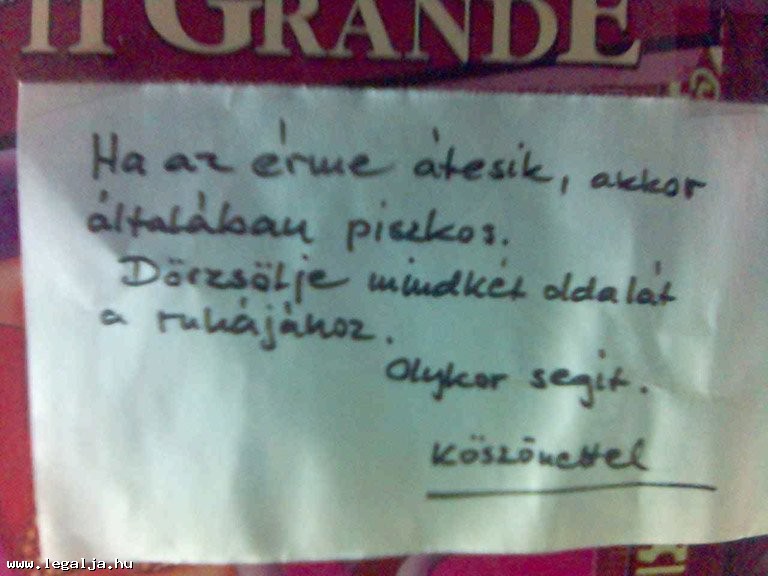 II GRANDE
Ha az érme átesik, akkor
általában piszkos.
Dörzsölje mindkét oldalát
a ruhájához.
Olykor segit.
Köszönettel
www.legalja.hu